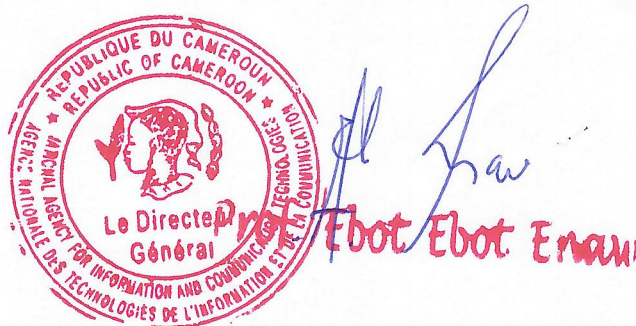 REPUBLIQUE DU CAMEROUN
REPUBLIC OF CAMEROON
NATIONAL AGENCY FOR INFORMATION AND COMMUNICATION TECHNOLOGIES
AGENCE NATIONALE DES TECHNOLOGIES DE L'INFORMATION ET DE LA COMMUNICATION
Le Directeur
Général
Prof Ebot Ebot Enaw